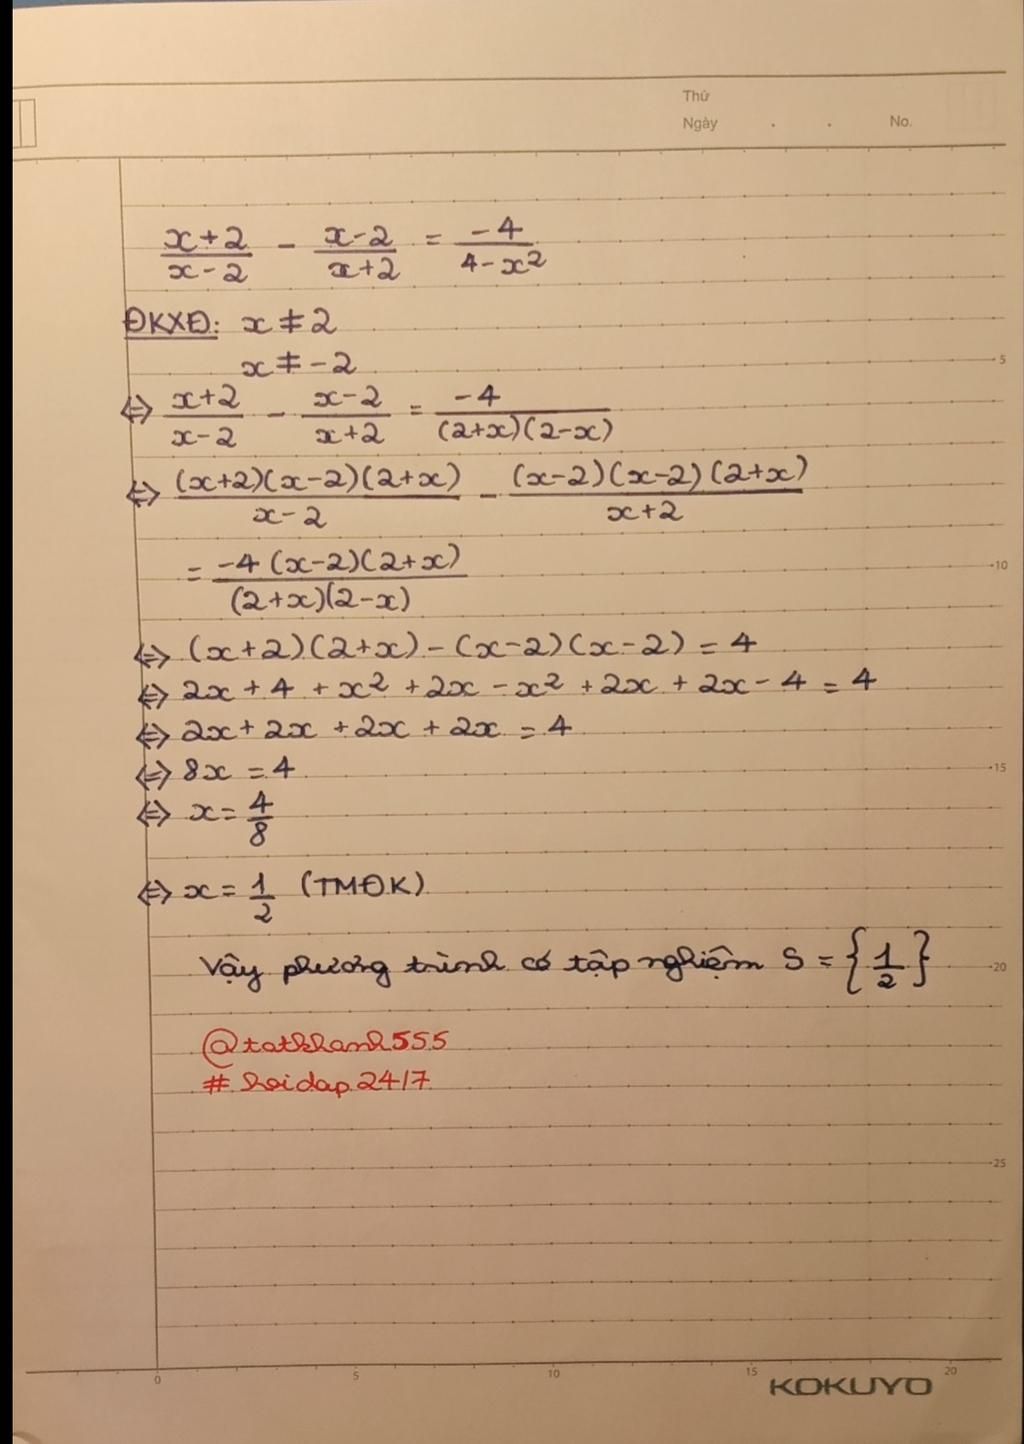 Thứ
Ngày . . No.
x+2/x-2 - x-2/x+2 = -4/4-x²
ĐKXĐ: x ≠ 2
x ≠ -2
⇔ x+2/x-2 - x-2/x+2 = -4/(2+x)(2-x)
⇔ (x+2)(x-2)(2+x)/x-2 - (x-2)(x-2)(2+x)/x+2
= -4(x-2)(2+x)/(2+x)(2-x)
⇔ (x+2)(2+x) - (x-2)(x-2) = 4
⇔ 2x + 4 + x² + 2x - x² + 2x + 2x - 4 = 4
⇔ 2x + 2x + 2x + 2x = 4
⇔ 8x = 4
⇔ x = 4/8
⇔ x = 1/2 (TMĐK)
Vậy phương trình có tập nghiệm S = {1/2}
@tatkhanh555
#hoidap24/7
5
10
15
20
25
0 5 10 15 20
KOKUYO